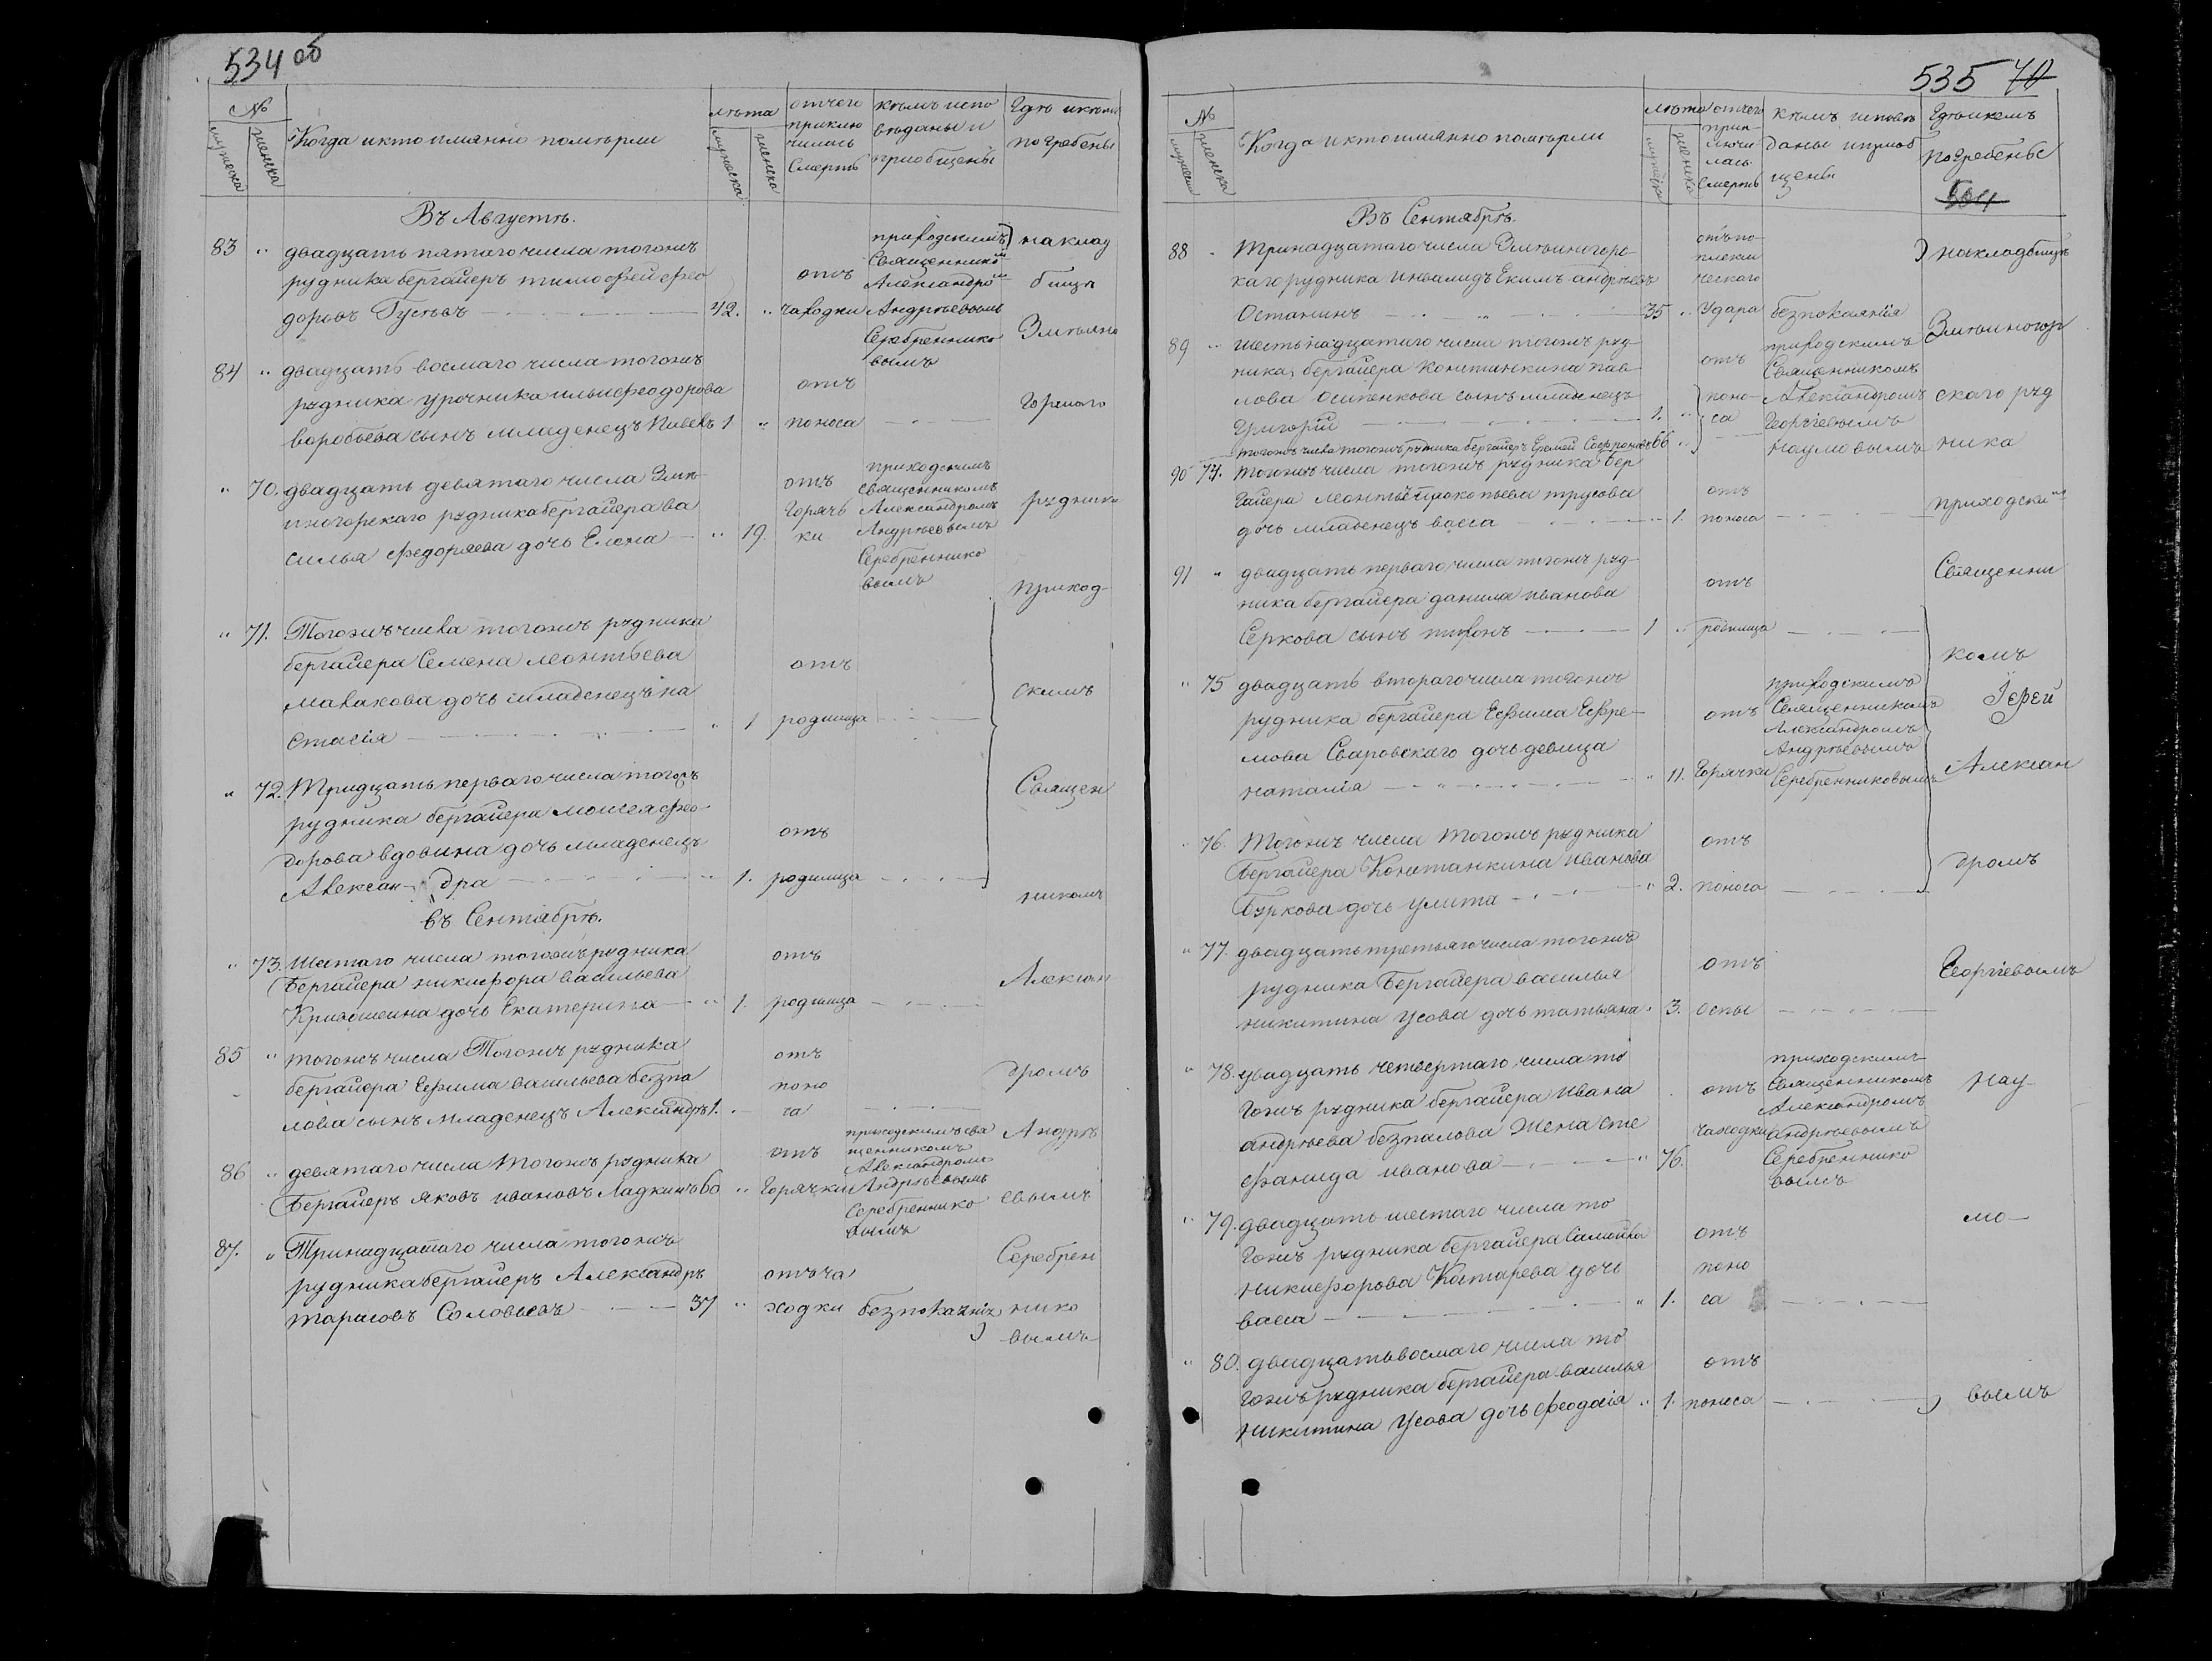 534 об
№
мужеска
женска
Когда и кто имянно помѣрли
лѣта
мужеска
женска
отчего
приклю
чилась
Смерть
кѣмъ испо
вѣданы и
приобщены
Гдѣ и кѣмъ
погребены
Въ Августѣ.
83 " двадцать пятаго числа тогожъ
рудника бергайеръ тимофей фео
доровъ Гусевъ 42. "
отъ
чаходки
приходскимъ
Священнико
Александро
Андрѣевымъ
Серебреннико
вымъ
84 " двадцать восмаго числа тогожъ
рудника урочника ильи феодорова
воробьева сынъ младенецъ Павелъ 1 "
отъ
поноса
" 70. двадцать девятаго числа Змѣ
иногорскаго рудника бергайера ва
силья федоряева дочь Елена " 19.
отъ
Горяч
ки
приходскимъ
священникомъ
Александромъ
Андрѣевымъ
Серебреннико
вымъ
" 71. Тогожъ числа тогожъ рудника
бергайера Семена леонтьева
малахова дочь младенецъ на
стасія " 1
отъ
родимца
" 72. Тридцать перваго числа тогожъ
рудника бергайера моисея фео
дорова вдовина дочь младенецъ
Алексан дра " 1.
отъ
родимца
въ Сентябрѣ.
" 73. Шестаго числа тогожъ рудника
Бергайера никифора васильева
Кривошеина дочь Екатерина " 1.
отъ
родимца
85 " тогожъ числа Тогожъ рудника
бергайера Ефима васильева безпа
лова сынъ младенецъ Александръ 1.
отъ
поно
са
86 " девятаго числа тогожъ рудника
Бергайеръ яковъ ивановъ Ладкинъ 60 "
отъ
Горячки
приходскимъ свя
щенникомъ
Александромъ
Андрѣевымъ
Серебреннико
вымъ
87. " Тринадцатаго числа тогожъ
рудника бергайеръ Александръ
тарасовъ Соловьевъ 37 "
отъ ча
ходки
безпокаянія
на клад
бища
Змѣино
горскаго
рудника
приход
скимъ
Священ
никомъ
Алексан
дромъ
Андрѣ
евымъ
Серебрен
нико
вымъ
535 70
№
мужеска
женска
Когда и кто имянно помѣрли
лѣта
мужеска
женска
отчего
прик
лючи
лась
Смерть
кѣмъ исповѣ
даны и приоб
щены
Гдѣ и кемъ
погребены
504
Въ Сентябрѣ.
88 " Тринадцатаго числа Змѣиногорс
каго рудника инвалидъ Екимъ андрѣевъ
Останинъ 35 "
отъ апо
плекси
ческаго
Удара
безпокаянія
89 " шестьнадцатаго числа тогожъ руд
ника, бергайера Констанкина пав
лова Осипенкова сынъ младенецъ
Григорій 1. "
отъ
поно
са
приходскимъ
Священникомъ
Александромъ
Георгіевымъ
Наумовымъ
тогожъ числа тогожъ рудника бергайеръ Еремей Софроновъ 66 "
90 74. тогожъ числа тогожъ рудника бер
гайера леонтья прокопьева трусова
дочь младенецъ васса " 1.
отъ
поноса
91 " двадцать перваго числа тогожъ руд
ника бергайера данила иванова
Серкова сынъ тихонъ 1 "
отъ
родимца
" 75 двадцать втораго числа тогожъ
рудника бергайера Ефима Ефре
мова Сваровскаго дочь девица
наталія " 11.
отъ
Горячки
приходскимъ
Священникомъ
Александромъ
Андрѣевымъ
Серебренниковымъ
" 76. Тогожъ числа тогожъ рудника
Бергайера Констанкина иванова
Буркова дочь улита " 2.
отъ
поноса
" 77. двадцать третьяго числа тогожъ
рудника Бергайера василья
никитина Усова дочь татьяна " 3.
отъ
оспы
" 78. двадцать четвертаго числа то
гожъ рудника бергайера ивана
андрѣева безпалова жена сте
фанида иванова " 76.
отъ
чаходки
приходскимъ
Священникомъ
Александромъ
андрѣевымъ
Серебреннико
вымъ
" 79. двадцать шестаго числа то
гожъ рудника бергайера Самойла
никифорова Катарева дочь
васса " 1.
отъ
поно
са
" 80. двадцать восмаго числа то
гожъ рудника бергайера василья
никитина Усова дочь феодосія " 1.
отъ
поноса
на кладбищѣ
Змѣиногор
скаго руд
ника
приходски
Священни
комъ
Іерей
Алексан
дромъ
Георгіевымъ
Нау
мо
вымъ